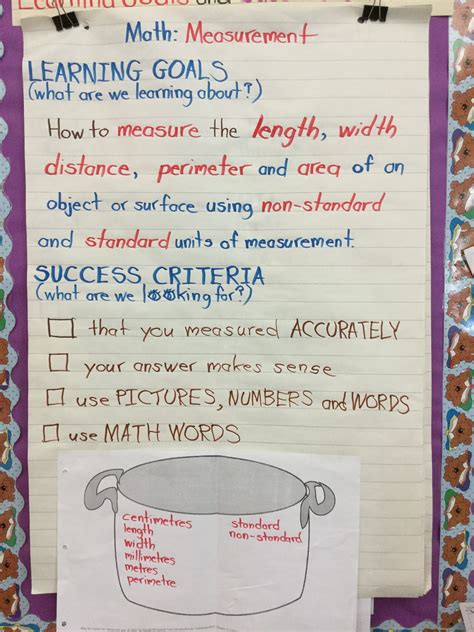 Learning Goals and
Math: Measurement
LEARNING GOALS
(what are we learning about?)
How to measure the length, width
distance, perimeter and area of an
object or surface using non-standard
and standard units of measurement.
SUCCESS CRITERIA
(what are we looking for?)
that you measured ACCURATELY
your answer makes sense
use PICTURES, NUMBERS and WORDS
use MATH WORDS
centimetres
length
width
millimetres
metres
perimetre
standard
non-standard